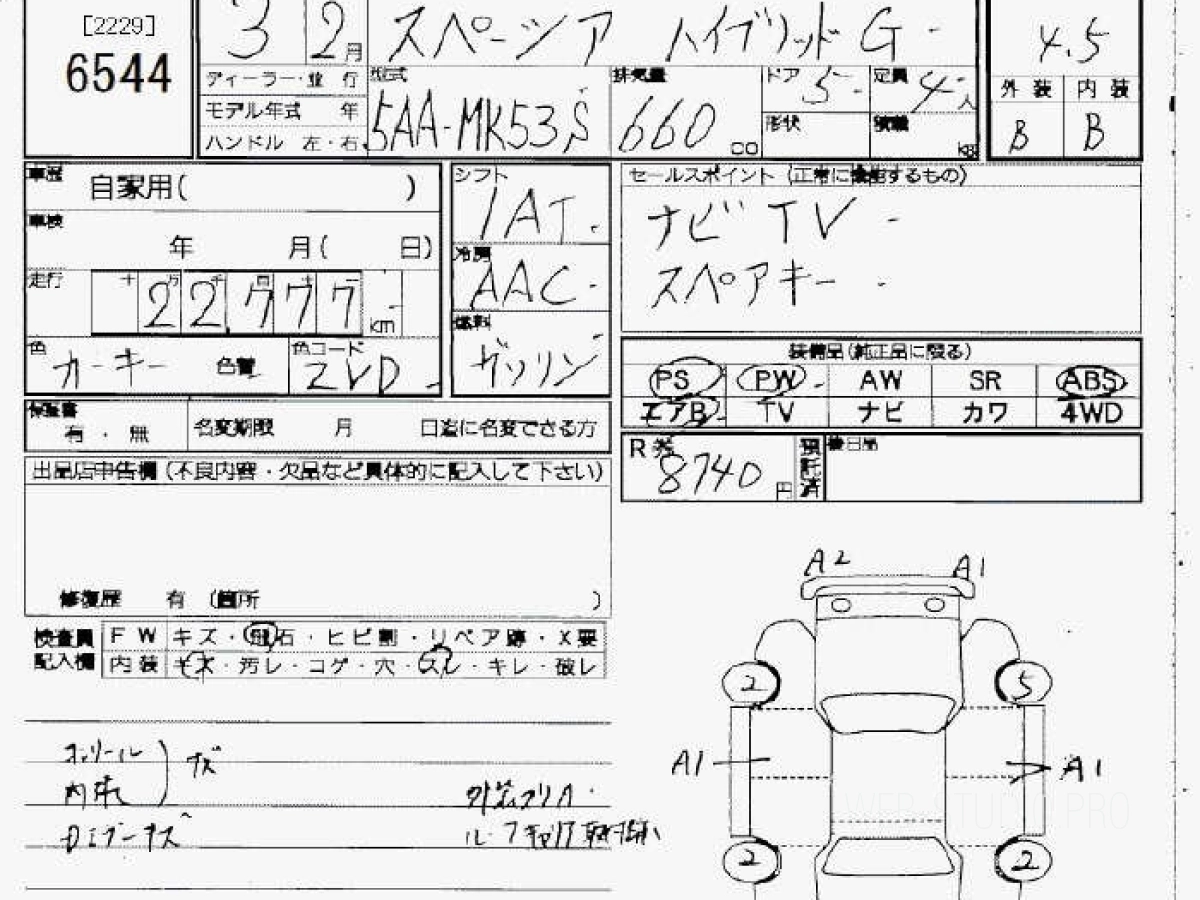 [2229]
6544
3 2月 スペーシア ハイブリッド G
4.5
ディーラー・並行
型式 5AA-MK53S
排気量 660 cc
ドア 5
定員 4人
外装 内装
モデル年式 年
形状
積載 kg
B B
ハンドル 左・右
車歴 自家用( )
シフト 1AT
セールスポイント (正常に機能するもの)
ナビ TV
スペアキー
車検 年 月( 日)
冷房 AAC
走行 十 万 千 百 十 22,777 km
燃料 ガソリン
色 カーキー 色替
色コード ZVD
装備品(純正品に限る)
PS PW AW SR ABS
エアB TV ナビ カワ 4WD
保証書 有・無
名変期限 月 日迄に名変できる方
R券 8740円
預託済
後日品
出品店申告欄(不良内容・欠品など具体的に記入して下さい)
修復歴 有 (箇所 )
検査員記入欄
FW キズ・飛石・ヒビ割・リペア跡・X要
内装 キズ・汚レ・コゲ・穴・スレ・キレ・破レ
A2 A1
2 5
A1 A1
2 2
内張
WEB PRO